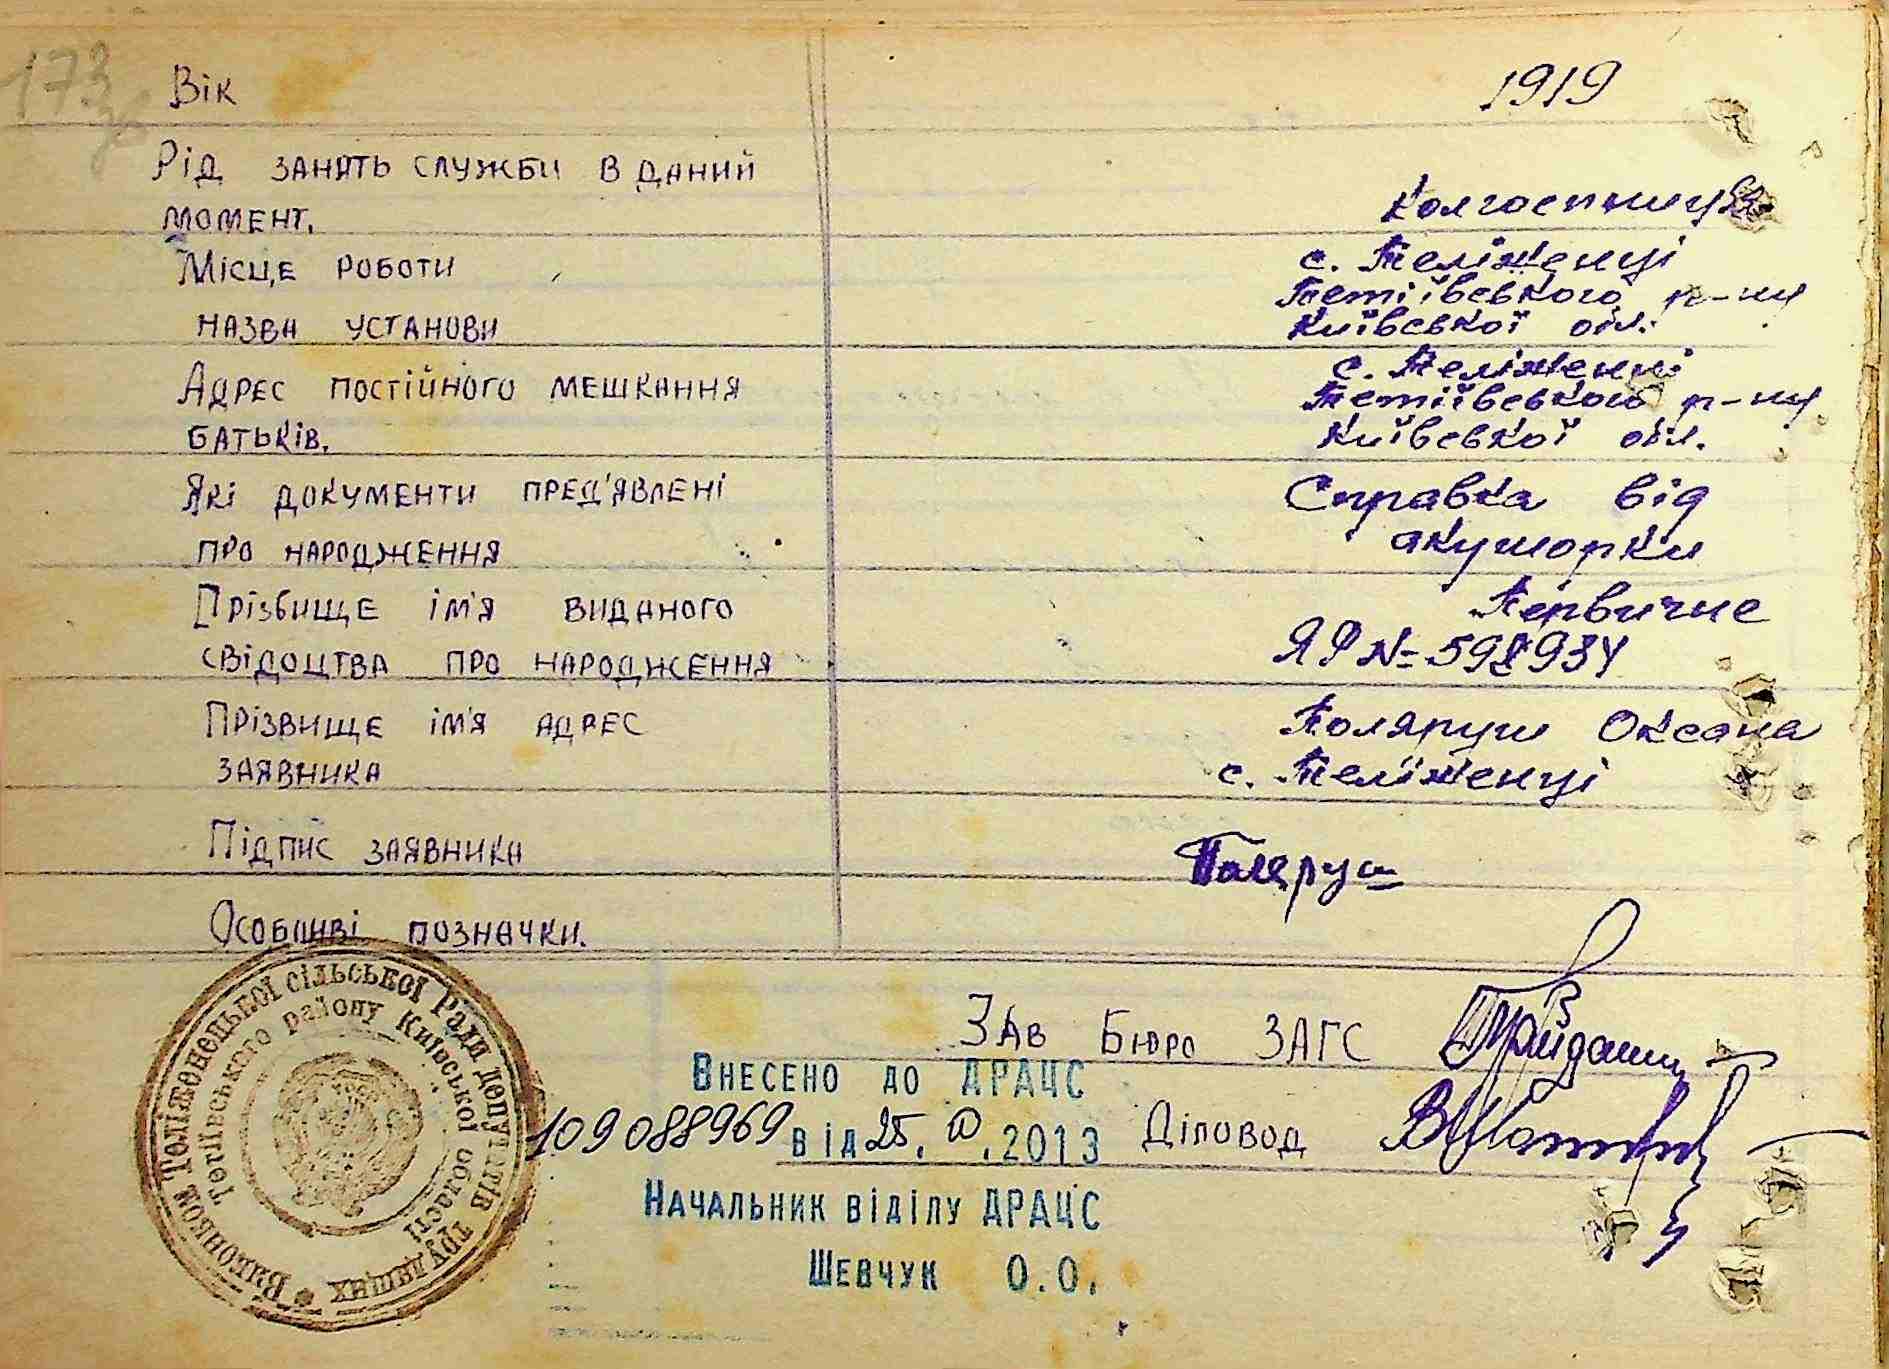 173
Вік 1919
Рід занять служби в даний
момент. Колгоспниця
Місце роботи с. Теліженці
Тетіївського р-ну
назва установи Київської обл.
с. Теліженці
Адрес постійного мешкання Тетіївського р-ну
батьків. Київської обл.
Які документи пред'явлені Справка від
про народження акушорки
Прізвище ім'я виданого Первичне
свідоцтва про народження ЯР №
Прізвище ім'я адрес Поляруш Оксана
заявника с. Теліженці
Підпис заявника Поляруш
Особливі позначки.
Зав Бюро ЗАГС
Внесено до ДРАЦС
109088969 від 25. .2013 Діловод
Начальник відділу ДРАЦС
Шевчук О.О.
Виконком Теліженецької сільської Ради депутатів трудящих
Тетіївського району Київської області